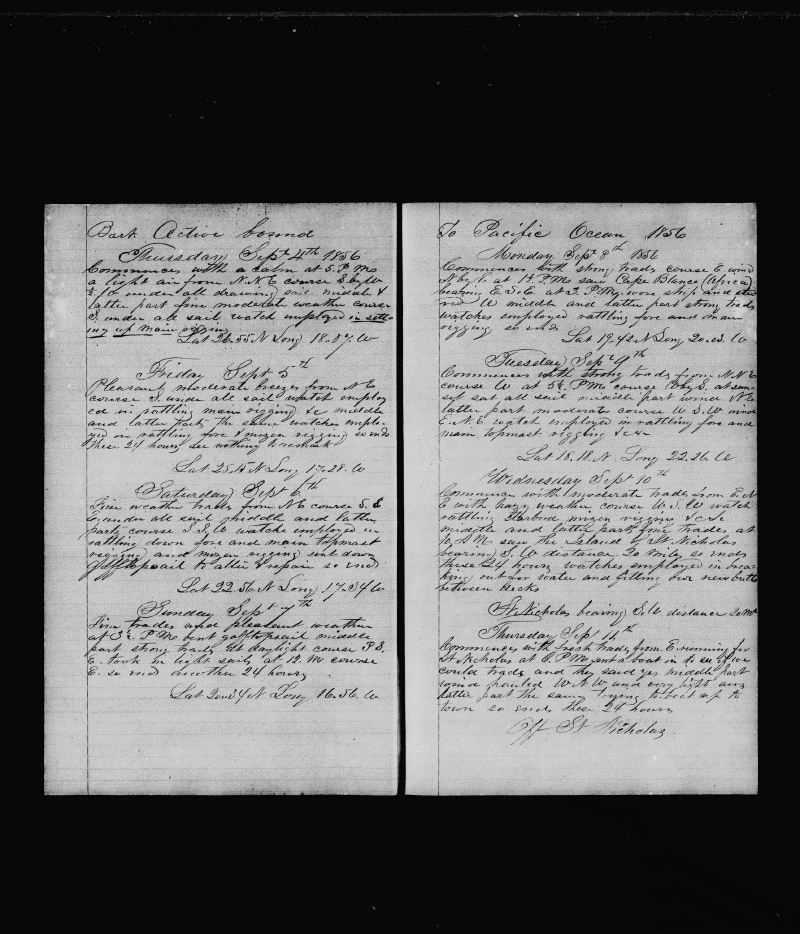 Bark Active bound
Thursday Sept 4th 1856
Commences with a calm at 5. P M
a light air from N.N.E course S by W
under all drawing sail midal &
latter part fine moderate weather course
S. under all sail watch employed in sett
ing up main riggin
Lat 26.55 N Long 18.37 W
Friday Sept 5th
Pleasant moderate breezes from N E
course S. under all sail watch employ
ed in rattling main rigging &c middle
and latter part the same watches emplo
yed in rattling fore & mizen rigging so ends
these 24 hours see nothing to remark
Lat 25.15 N Long 17.28. W
Saturday Sept 6th
Fine weather trades from N E course S. S
E, under all sail middle and latter
parts course S S W watch employed in
rattling down fore and main topmast
rigging and mizen rigging sent down
gafftopsail to alter & repair so ends
Lat 22.56 N Long 17.34 W
Sunday Sept 7th
Fine trades and pleasant weather
at 3½ P M bent gafftopsail middle
part strong trades at daylight course S
E. took in light sails at 12. M course
E. so ends another 24 hours
Lat 20.34 N Long 16.56. W
To Pacific Ocean 1856
Monday Sept 8th 1856
Commences with strong trades course E wind
N by E at 1½ P.M saw Cape Blanco (Africa)
bearing E.S.E. at 2 P M wore ship and ste
red W middle and latter part strong trades
watches employed rattling fore and main
rigging so ends
Lat 19.42 N Long 20.03. W
Tuesday Sept 9th
Commences with strong trades from N.N.E
course W at 5½ P M course W by S. at sun
set sat all sail middle part wind N.E
latter part moderate course W S.W wind
E.N.E watch employed in rattling fore and
main topmast rigging &c &c
Lat 18.18. N. Long 22.26. W
Wednesday Sept 10th
Commences with moderate trades from E. N
E with hazy weather course W S.W watch
rattling Starbord mizen rigging &c &c
middle and latter part fine trades at
10, A M saw the Island of St Nicholas
bearing S. W distance 20 miles so ends
these 24 hours watches employed in brea
king out for water and filling our new butts
between decks
St Nicholas bearing S.W distance 20 M
Thursday Sept 11th
Commences with fresh trades from E running for
St Nicholas at 6. P M sent a boat in to see if we
could trade and they said yes middle part
wind hauled W.N.W and very light airs
latter part the same trying to beat up to
town so ends these 24 hours
Off St Nicholas